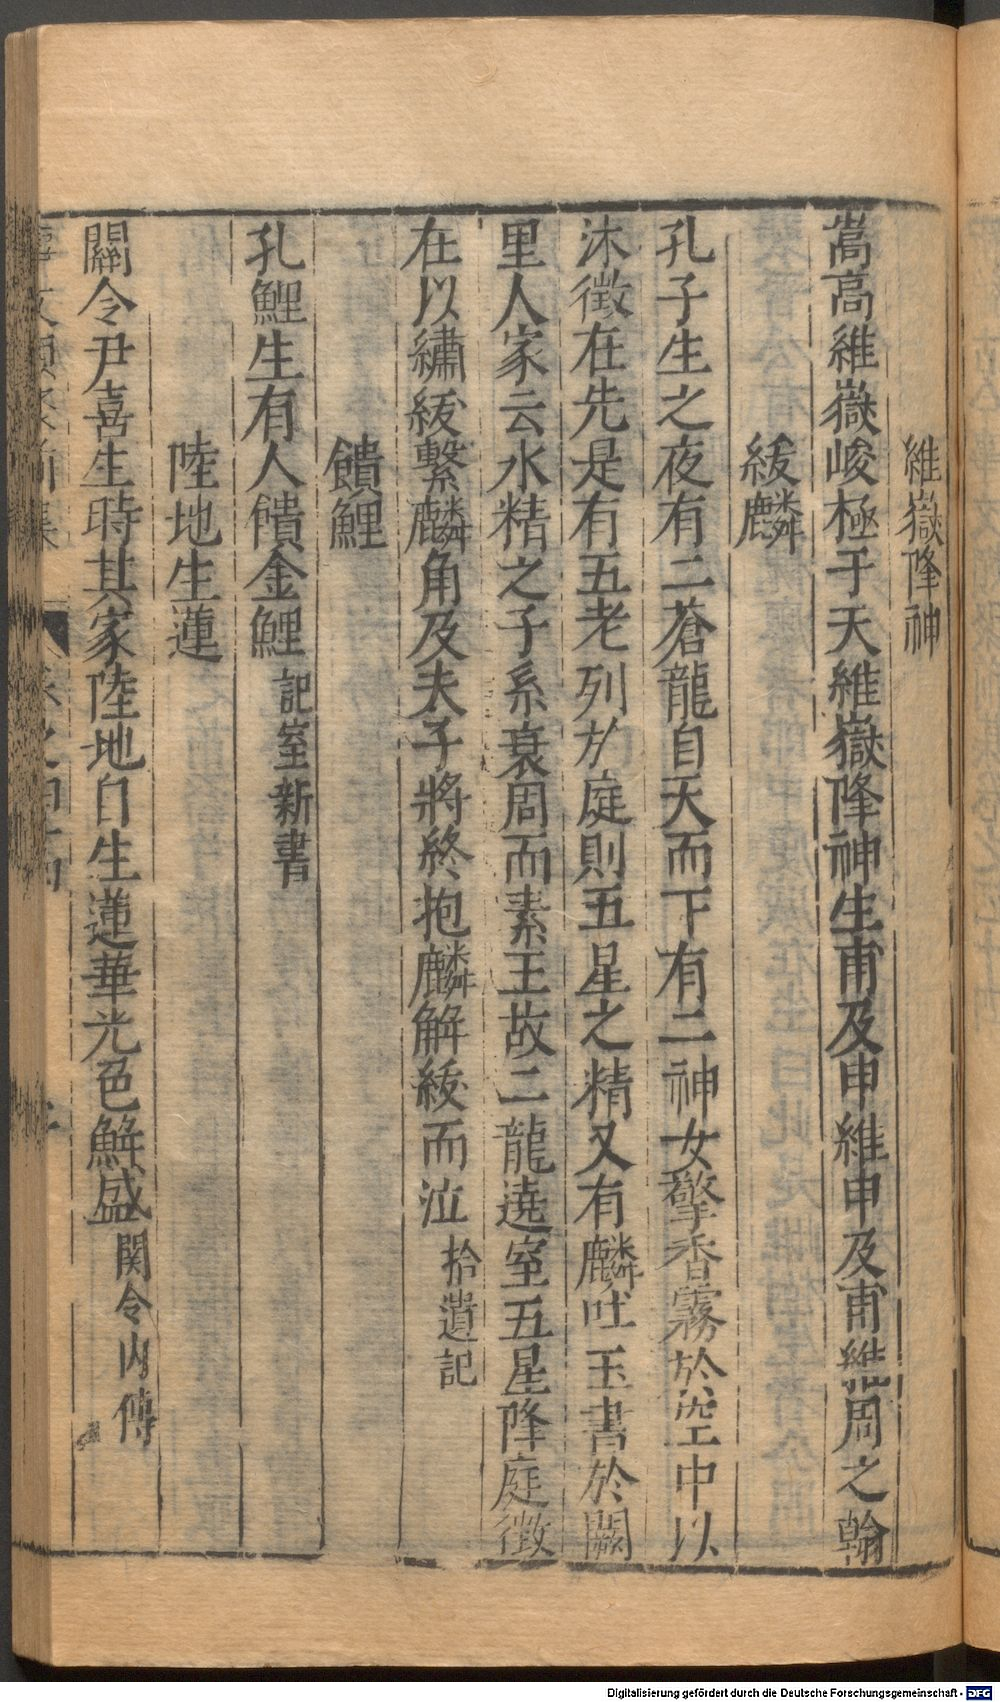 維嶽降神
嵩高維嶽峻極于天維嶽降神生甫及申維申及甫維周之翰
紱麟
孔子生之夜有二蒼龍自天而下有二神女擎香霧於空中以
沐徵在先是有五老列於庭則五星之精又有麟吐玉書於闕
里人家云水精之子系衰周而素王故二龍遶室五星降庭徵
在以繡紱繫麟角及夫子將終抱麟解紱而泣 拾遺記
饋鯉
孔鯉生有人饋金鯉 記室新書
陸地生蓮
關令尹喜生時其家陸地自生蓮華光色鮮盛 関令內傳
Digitalisierung gefördert durch die Deutsche Forschungsgemeinschaft - DFG